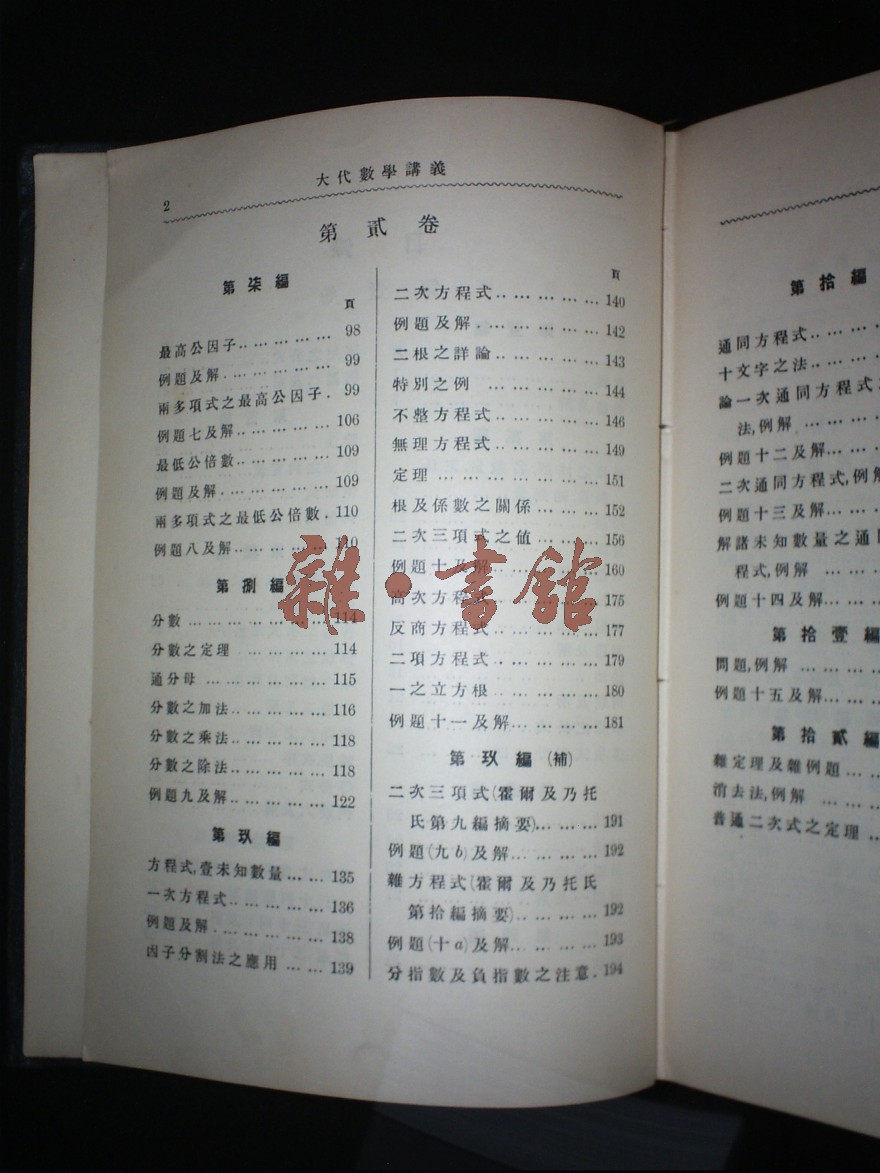 2
大代數學講義
第貳卷
第柒編
頁
最高公因子.. ... ... ... 98
例題及解. ... ... ... ... 99
兩多項式之最高公因子. 99
例題七及解.. ... ... ... 106
最低公倍數.. ... ... ... 109
例題及解. ... ... ... ... 109
兩多項式之最低公倍數. 110
例題八及解.. ... ... ... 110
第捌編
分數 ... ... ... ... ... 114
分數之定理 ... ... ... ... 114
通分母 ... ... ... ... ... 115
分數之加法.. ... ... ... 116
分數之乘法.. ... ... ... 118
分數之除法.. ... ... ... 118
例題九及解.. ... ... ... 122
第玖編
方程式,壹未知數量 ... ... 135
一次方程式.. ... ... ... 136
例題及解. ... ... ... ... 138
因子分割法之應用 ... ... 139
頁
二次方程式.. ... ... ... ... 140
例題及解. ... ... ... ... 142
二根之詳論 .. ... ... ... 143
特別之例 ... ... ... ... 144
不整方程式.. ... ... ... 146
無理方程式.. ... ... ... 149
定理 ... ... ... ... ... ... 151
根及係數之關係 ... ... ... 152
二次三項式之値 ... ... ... 156
例題十及解... ... ... ... 160
高次方程式.. ... ... ... 175
反商方程式.. ... ... ... 177
二項方程式.. ... ... ... 179
一之立方根.. ... ... ... 180
例題十一及解... ... ... ... 181
第玖編(補)
二次三項式(霍爾及乃托
氏第九編摘要)... ... ... 191
例題(九b)及解... ... ... 192
雜方程式(霍爾及乃托氏
第拾編摘要).. ... ... ... 192
例題(十a)及解... ... ... 193
分指數及負指數之注意. 194
雜·書館
第拾編
通同方程式.. ... ...
十文字之法.. ... ...
論一次通同方程式之
法,例解 ... ... ...
例題十二及解... ...
二次通同方程式,例解
例題十三及解... ...
解諸未知數量之通
程式,例解 ... ...
例題十四及解... ...
第拾壹編
問題,例解 ... ... ...
例題十五及解... ...
第拾貳編
雜定理及雜例題 ... ...
消去法,例解 ... ...
普通二次式之定理 ...